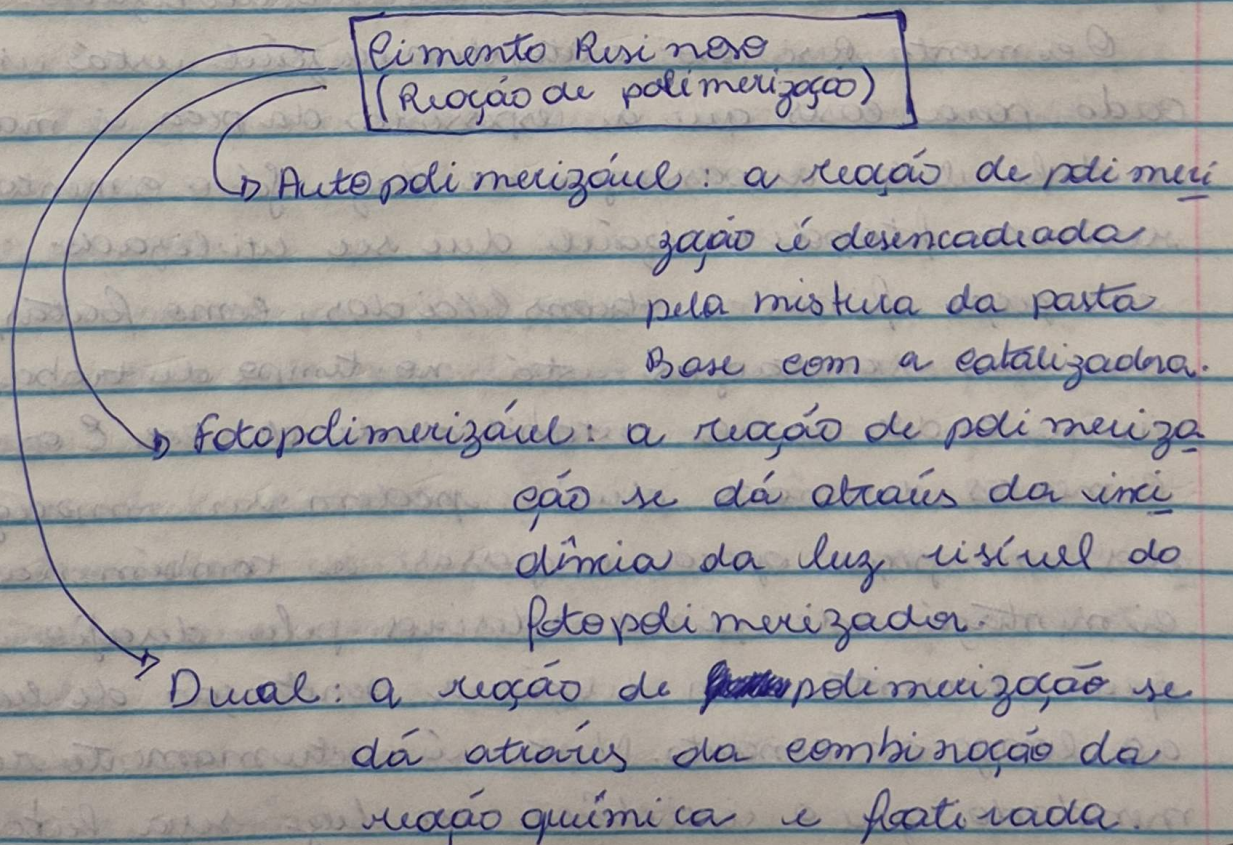 Cimento Resinoso
(Reação de polimerização)
Autopolimerizável: a reação de polimeri
zação é desencadeada
pela mistura da pasta
Base com a catalizadora.
Fotopolimerizável: a reação de polimeriza
ção se dá através da inci
dência da luz visível do
fotopolimerizador.
Dual: a reação de polimerização se
dá através da combinação da
reação química e fotativada.